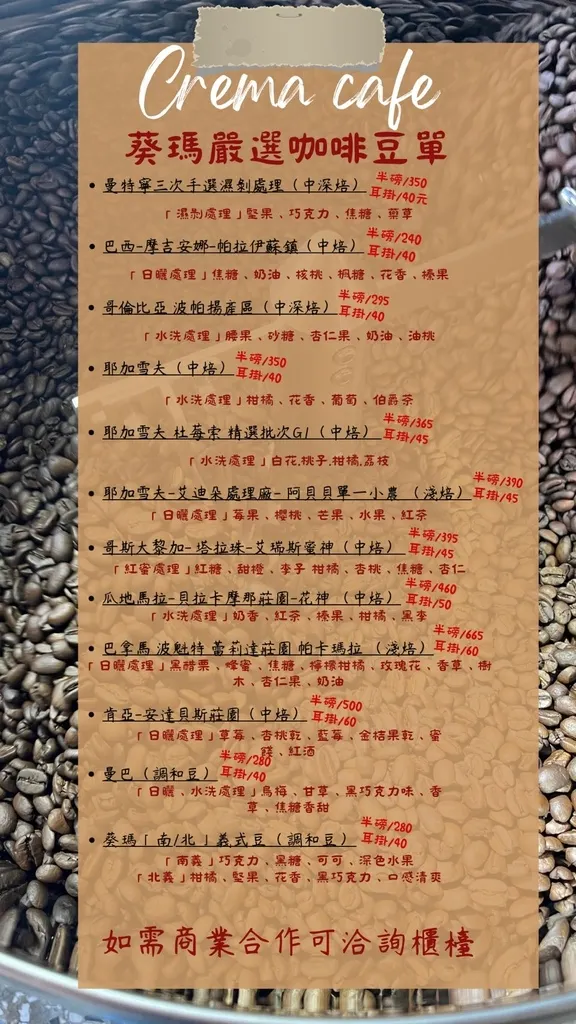 Crema cafe
葵瑪嚴選咖啡豆單
• 曼特寧三次手選濕剝處理（中深焙） 半磅/350
耳掛/40元
「濕剝處理」堅果、巧克力、焦糖、藥草
• 巴西-摩吉安娜-帕拉伊蘇鎮（中焙） 半磅/240
耳掛/40
「日曬處理」焦糖、奶油、核桃、楓糖、花香、榛果
• 哥倫比亞 波帕揚產區（中深焙） 半磅/295
耳掛/40
「水洗處理」腰果、砂糖、杏仁果、奶油、油桃
• 耶加雪夫（中焙） 半磅/350
耳掛/40
「水洗處理」柑橘、花香、葡萄、伯爵茶
• 耶加雪夫 杜莓索 精選批次G1（中焙） 半磅/365
耳掛/45
「水洗處理」白花.桃子.柑橘.荔枝
• 耶加雪夫-艾迪朵處理廠-阿貝貝單一小農（淺焙） 半磅/390
耳掛/45
「日曬處理」莓果、櫻桃、芒果、水果、紅茶
• 哥斯大黎加-塔拉珠-艾瑞斯蜜神（中焙） 半磅/395
耳掛/45
「紅蜜處理」紅糖、甜橙、李子 柑橘、杏桃、焦糖、杏仁
• 瓜地馬拉-貝拉卡摩那莊園-花神（中焙） 半磅/460
耳掛/50
「水洗處理」奶香、紅茶、榛果、柑橘、黑李
• 巴拿馬 波魁特 蕾莉達莊園 帕卡瑪拉（淺焙） 半磅/665
耳掛/60
「日曬處理」黑醋栗、蜂蜜、焦糖、檸檬柑橘、玫瑰花、香草、樹
木、杏仁果、奶油
• 肯亞-安達貝斯莊園（中焙） 半磅/500
耳掛/60
「日曬處理」草莓、杏桃乾、藍莓、金桔果乾、蜜
餞、紅酒
• 曼巴（調和豆） 半磅/280
耳掛/40
「日曬、水洗處理」烏梅、甘草、黑巧克力味、香
草、焦糖香甜
• 葵瑪「南/北」義式豆（調和豆） 半磅/280
耳掛/40
「南義」巧克力、黑糖、可可、深色水果
「北義」柑橘、堅果、花香、黑巧克力、口感清爽
如需商業合作可洽詢櫃檯